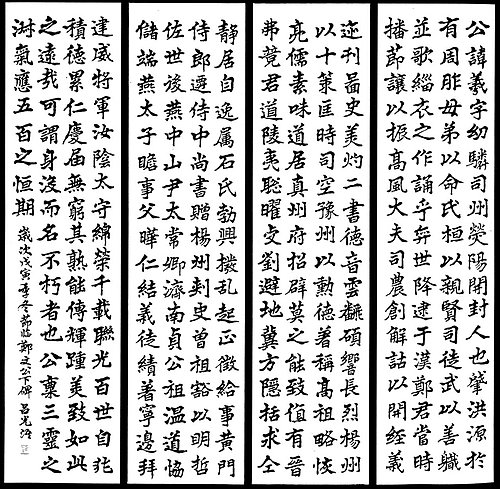 公諱羲字幼驎司州熒陽開封人也肇洪源於
有周胙母弟以命氏桓以親賢司徒武以善軄
並歌緇衣之作誦乎奔世降逮于漢鄭君當時
播節讓以振髙風大夫司農創解詁以開經義
迹刋啚史美灼二書德音雲翻碩響長烈楊州
以十策匡時司空豫州以勲德著稱高祖略恢
亮儒素味道居真州府招辟莫之能致值有晉
弗競君道陵夷聡曜交劉避地冀方隱括求仝
静居自逸属石氏勃興撥乱起正徵給事黄門
侍郎遷侍中尚書贈楊州刾史曾祖豁以明哲
佐世後燕中山尹太常卿濟南貞公祖温道恊
儲端燕太子瞻事父曄仁結義徒績著寧邊拜
建威將軍汝陰太守綿榮千載聯光百世自非
積德累仁慶届無窮其熟能傳輝踵美致如此
之遠哉可謂身没而名不朽者也公稟三靈之
淋氣應五百之恒期 歲次戊寅季冬節臨鄭文公下碑 呂光